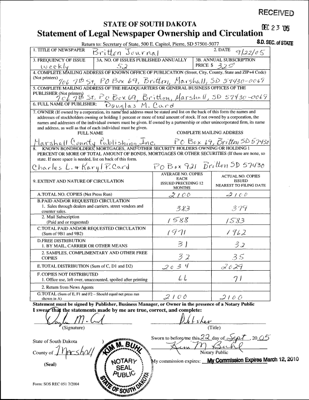 RECEIVED
DEC 23 '05
S.D. SEC. of STATE
STATE OF SOUTH DAKOTA
Statement of Legal Newspaper Ownership and Circulation
Return to: Secretary of State, 500 E. Capitol, Pierre, SD 57501-5077
1. TITLE OF NEWSPAPER Britton Journal
2. DATE 9/22/05
3. FREQUENCY OF ISSUE weekly
3A. NO. OF ISSUES PUBLISHED ANNUALLY 52
3B. ANNUAL SUBSCRIPTION PRICE $
4. COMPLETE MAILING ADDRESS OF KNOWN OFFICE OF PUBLICATION (Street, City, County, State and ZIP+4 Code) (Not printers)
PO Box 69, Britton, Marshall, SD 57430-0069
5. COMPLETE MAILING ADDRESS OF THE HEADQUARTERS OR GENERAL BUSINESS OFFICES OF THE PUBLISHER (Not printer)
PO Box 69, Britton, Marshall, SD 57430-0069
6. FULL NAME OF PUBLISHER: Douglas M. Card
7. OWNER (If owned by a corporation, its name and address must be stated and list on the back of this form the names and
addresses of stockholders owning or holding 1 percent or more of total amount of stock. If not owned by a corporation, the
names and addresses of the individual owners must be given. If owned by a partnership or other unincorporated firm, its name
and address, as well as that of each individual must be given.
FULL NAME COMPLETE MAILING ADDRESS
Marshall County Publishing Inc. PO Box 69, Britton SD 57430
8. KNOWN BONDHOLDERS, MORTGAGES, AND OTHER SECURITY HOLDERS OWNING OR HOLDING 1
PERCENT OR MORE OF TOTAL AMOUNT OF BONDS, MORTGAGES OR OTHER SECURITIES (If there are none, so
state. If more space is needed, list on back of this form.
Charles L. & Karyl P. Card PO Box 921 Britton SD 57430
9. EXTENT AND NATURE OF CIRCULATION
AVERAGE NO. COPIES EACH ISSUED PRECEDING 12 MONTHS
ACTUAL NO. COPIES ISSUED NEAREST TO FILING DATE
A. TOTAL NO. COPIES (Net Press Run) 2100 2100
B. PAID AND/OR REQUESTED CIRCULATION
1. Sales through dealers and carriers, street vendors and counter sales. 383 379
2. Mail Subscription (Paid and or requested) 1588 1583
C. TOTAL PAID AND/OR REQUESTED CIRCULATION (Sum of 9B1 and 9B2) 1971 1962
D. FREE DISTRIBUTION
1. BY MAIL, CARRIER OR OTHER MEANS 31 32
2. SAMPLES, COMPLIMENTARY AND OTHER FREE COPIES 32 35
E. TOTAL DISTRIBUTION (Sum of C, D1 and D2) 2034 2029
F. COPIES NOT DISTRIBUTED
1. Office use, left over, unaccounted, spoiled after printing 66 71
2. Return from News Agents
G. TOTAL (Sum of E, F1 and F2 - Should equal net press run shown in A) 2100 2100
Statement must be signed by Publisher, Business Manager, or Owner in the presence of a Notary Public
I swear that the statements made by me are true, correct, and complete:
Publisher
(Signature) (Title)
State of South Dakota
County of Marshall
(Seal)
KIM M. BUHL
NOTARY
SEAL
PUBLIC
SOUTH DAKOTA
Sworn to before me this 22 day of Sept. 2005
Kim M Buhl
Notary Public
My commission expires: My Commission Expires March 12, 2010
Form: SOS REC 051 7/2004